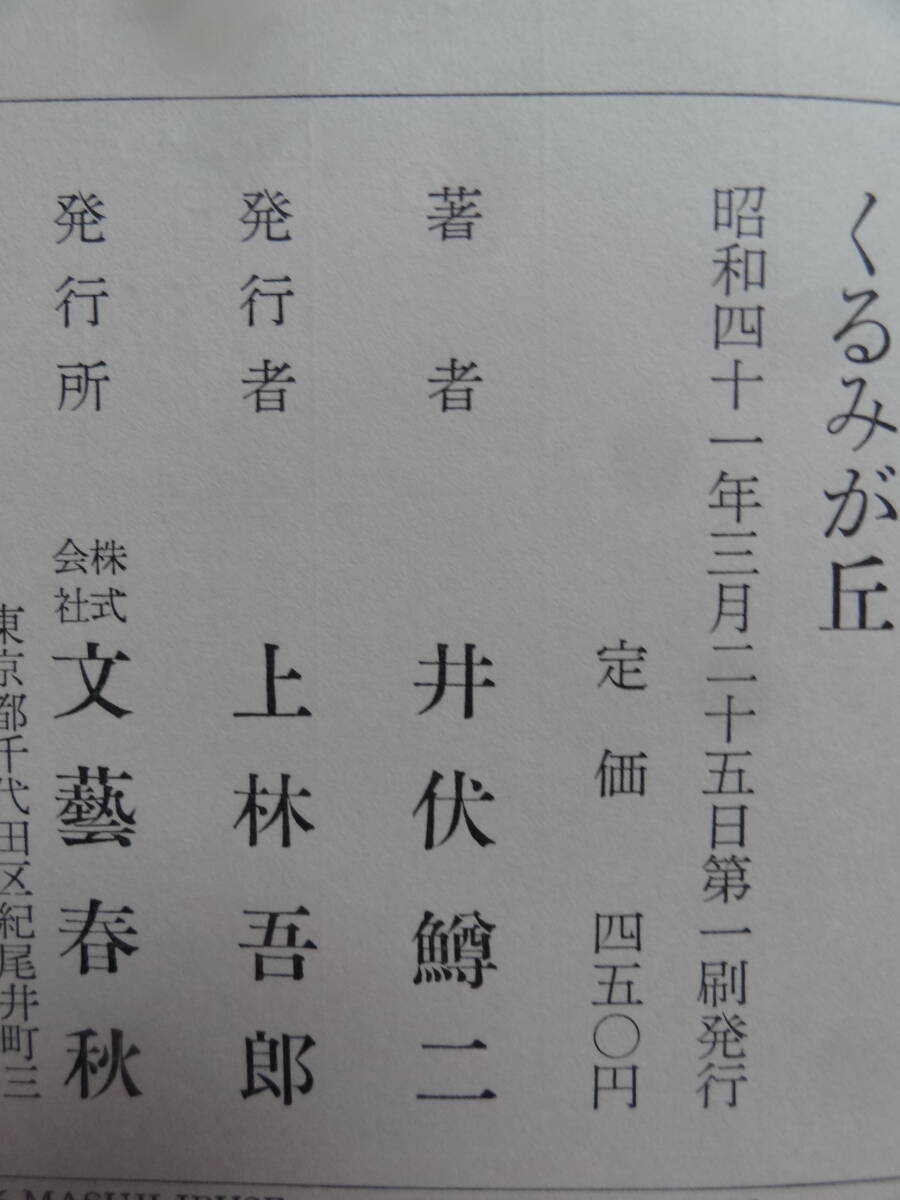 くるみが丘
昭和四十一年三月二十五日第一刷発行
定価 四五〇円
著者 井伏鱒二
発行者 上林吾郎
発行所 株式会社 文藝春秋
東京都千代田区紀尾井町三
MASUJI IBUSE